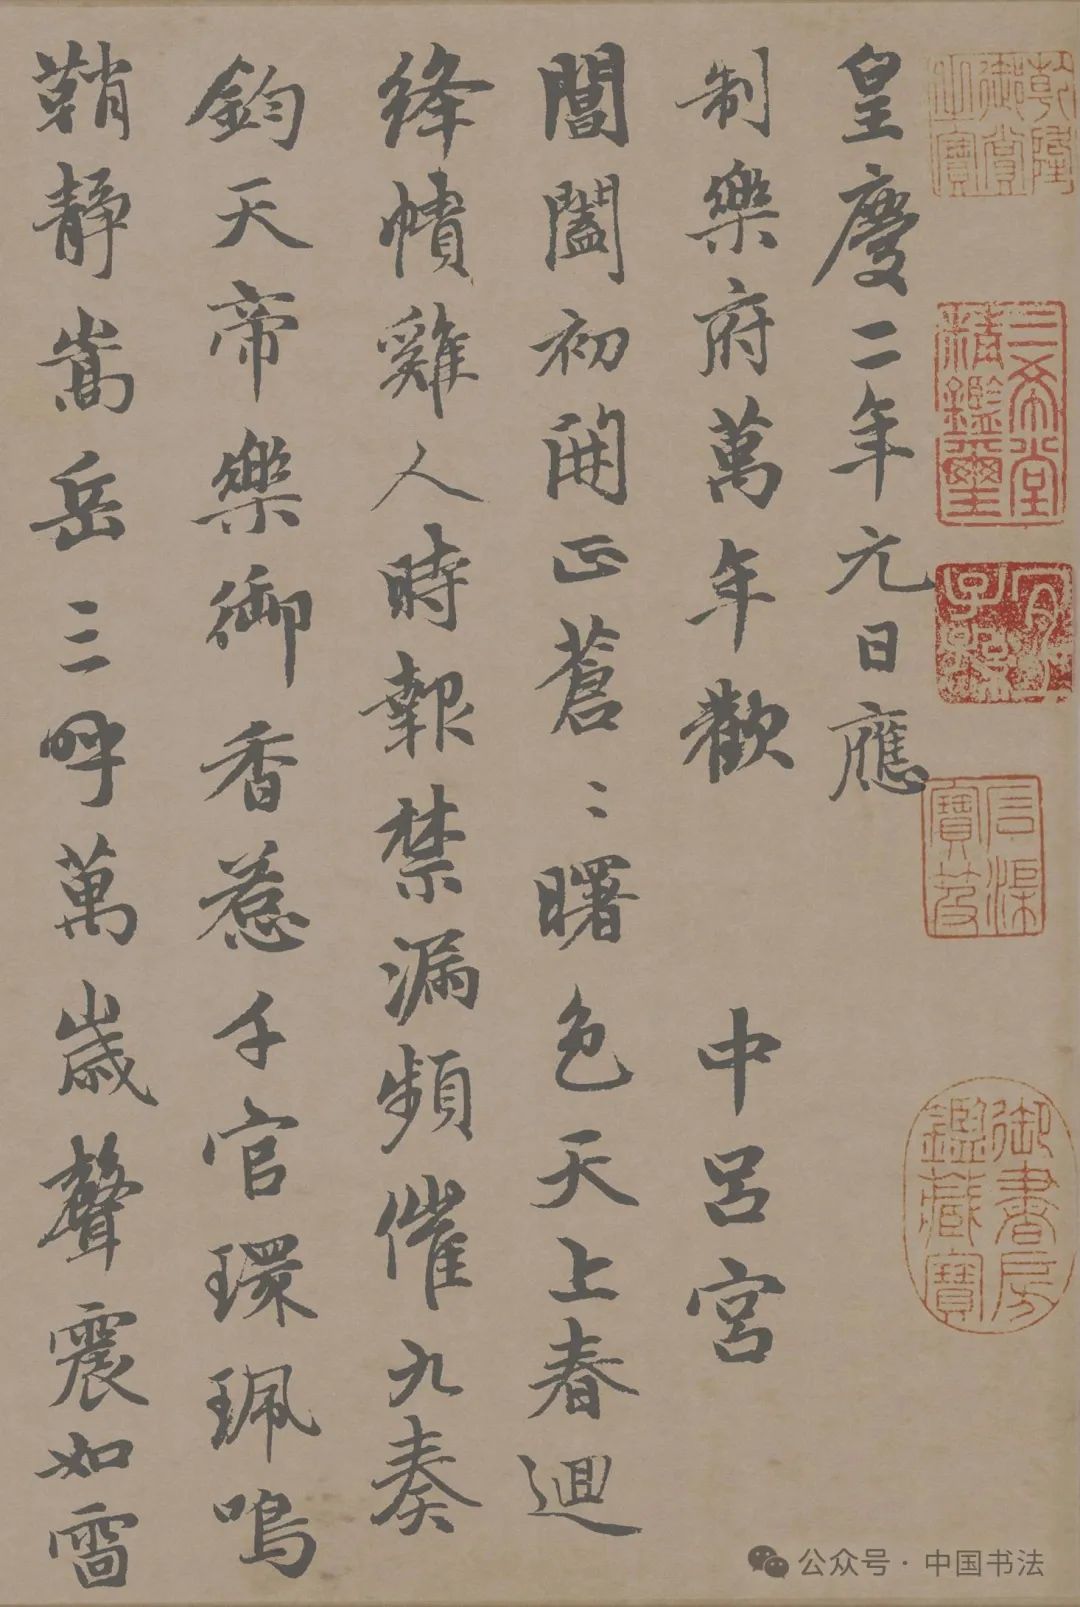 乾隆御賞之寶
三希堂精鑑璽
宜子孫
石渠寶笈
御書房鑑藏寶
皇慶二年元日應
制樂府萬年歡　中呂宮
閶闔初開正蒼〻曙色天上春迴
絳幘雞人時報禁漏頻催九奏
鈞天帝樂御香惹千官環珮鳴
鞘靜嵩岳三呼萬歲聲震如雷
公众号·中国书法